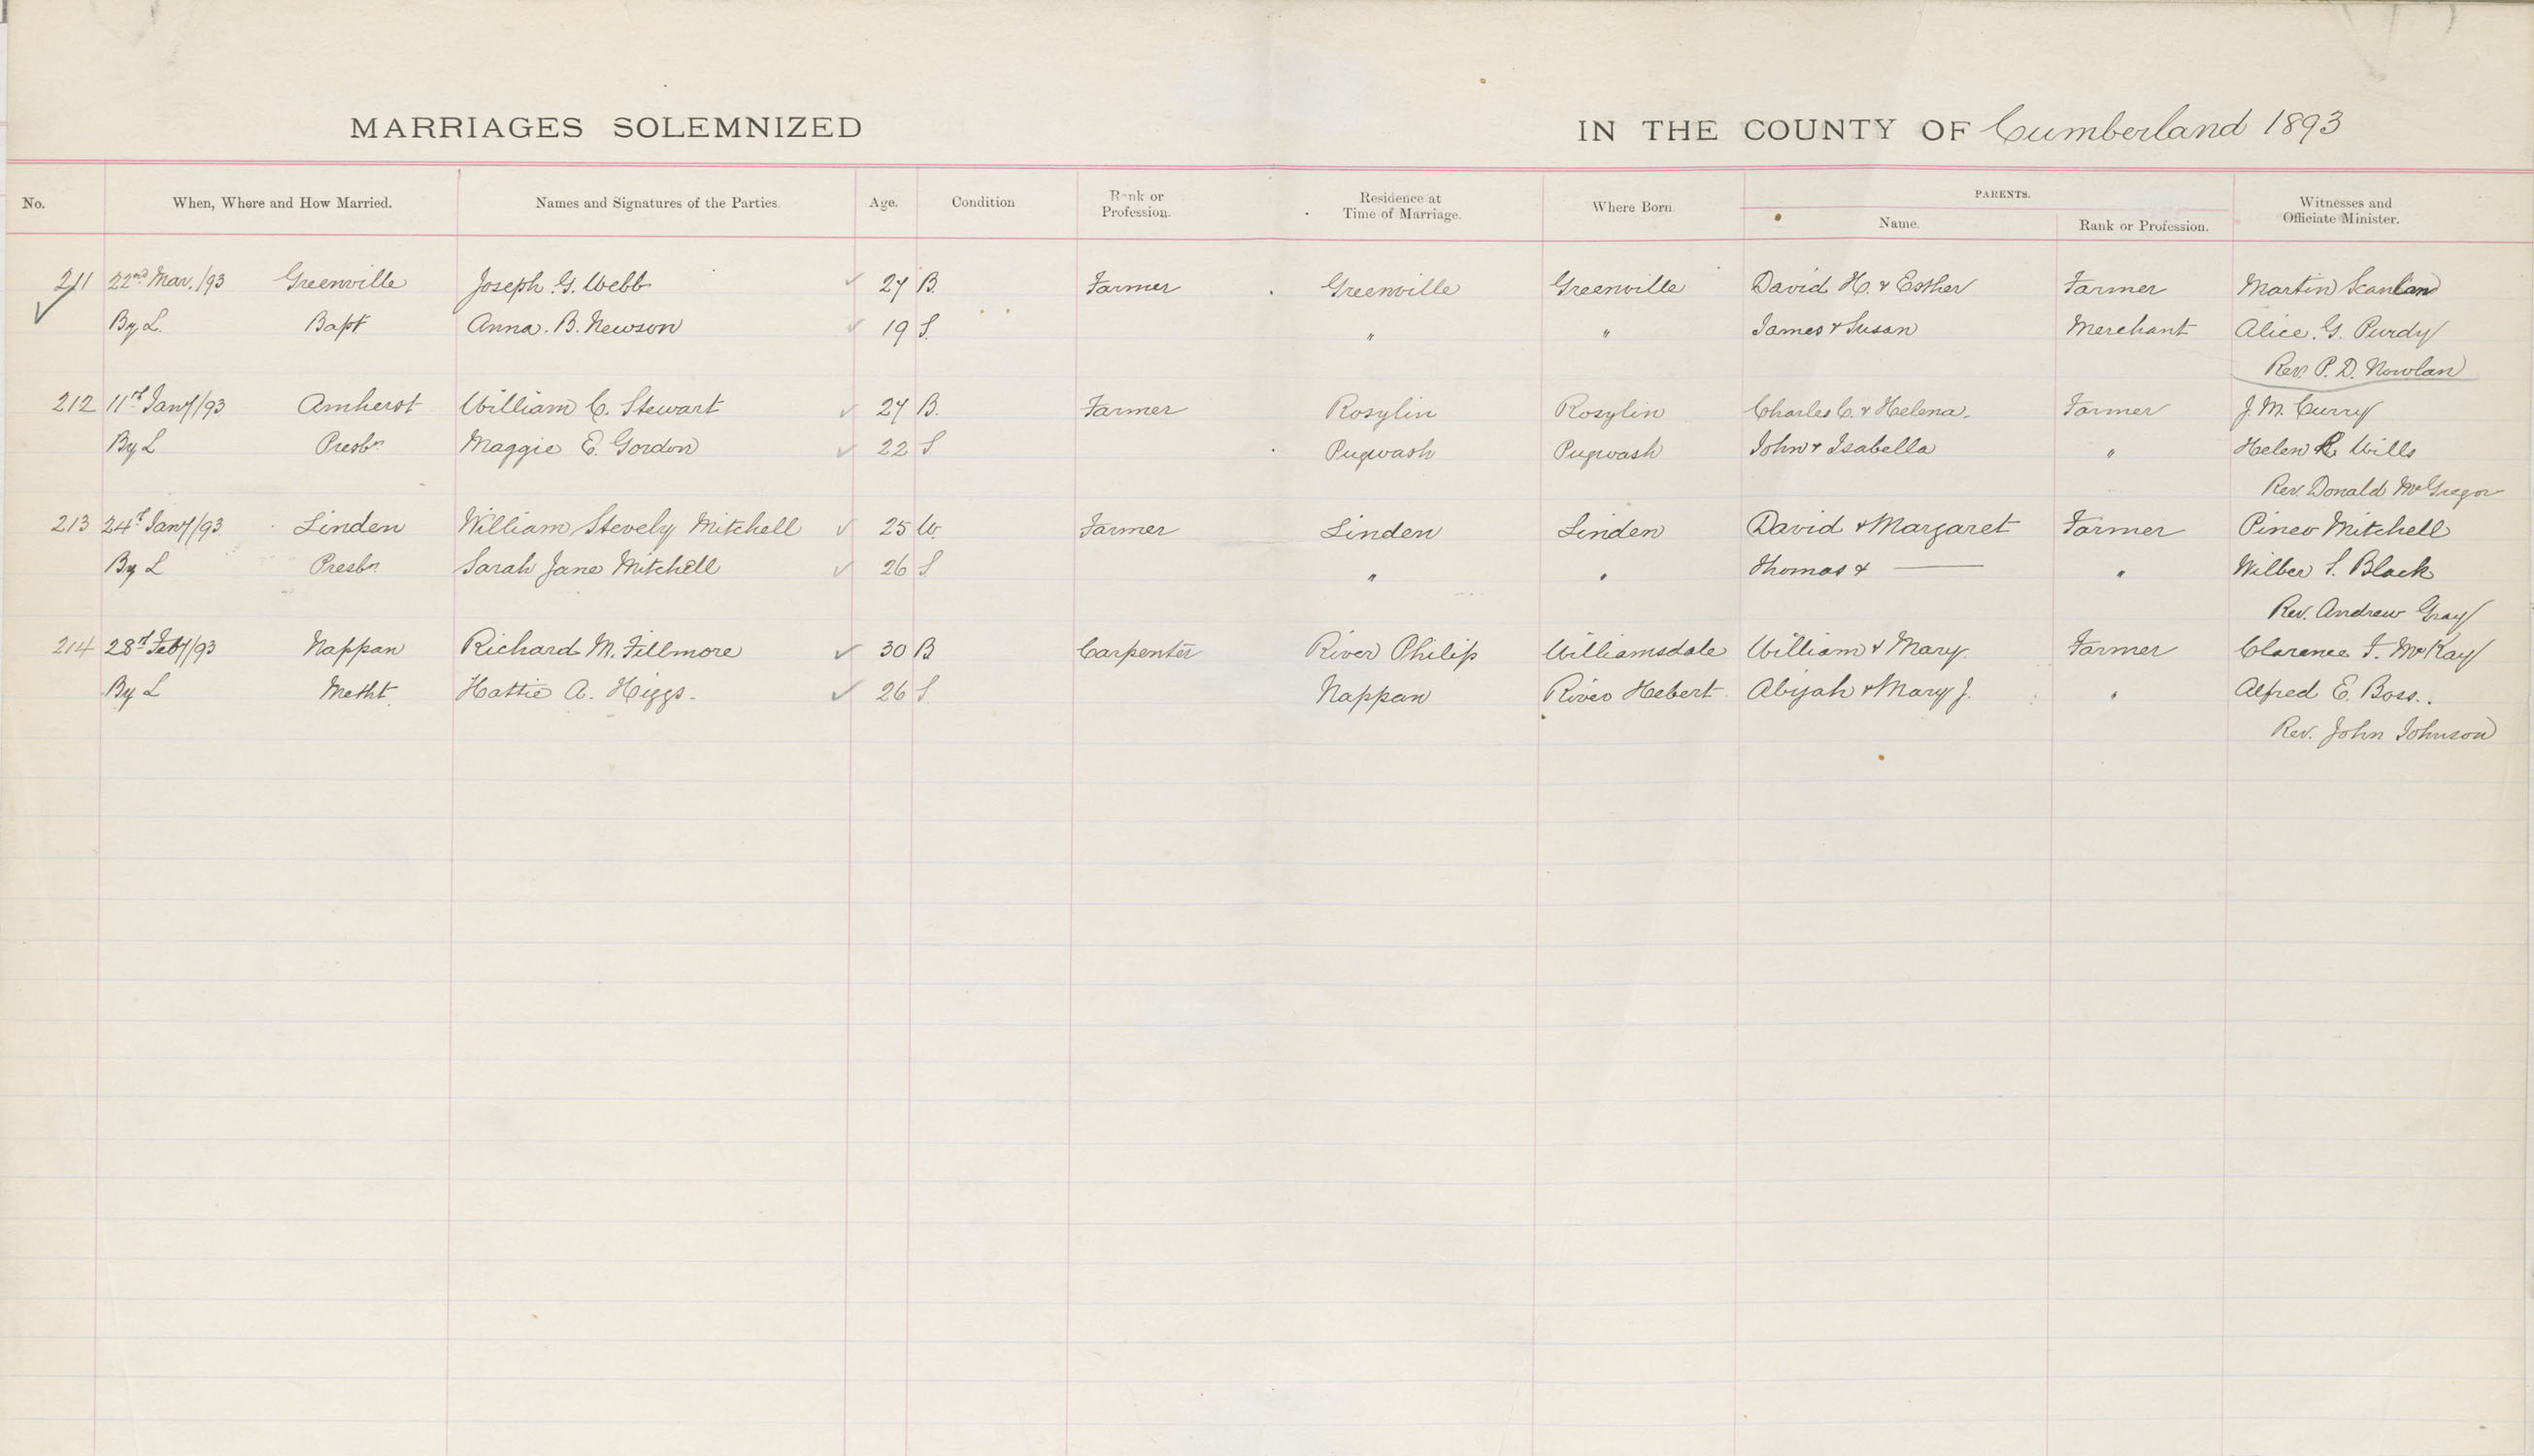 MARRIAGES SOLEMNIZED IN THE COUNTY OF Cumberland 1893
No. When, Where and How Married. Names and Signatures of the Parties. Age. Condition Rank or Profession. Residence at Time of Marriage. Where Born PARENTS. Name. Rank or Profession. Witnesses and Officiate Minister.
211 22nd Mar./93 Greenville Joseph G. Webb 27 B. Farmer Greenville Greenville David H. & Esther Farmer Martin Scanlan
By L. Bapt Anna. B. Newson 19 S. " " James & Susan Merchant Alice. G. Purdy
Rev. P. D. Nowlan
212 11th Jany/93 Amherst William C. Stewart 27 B. Farmer Rosylin Rosylin Charles C. & Helena. Farmer J. M. Curry
By L Presbn Maggie E. Gordon 22 S Pugwash Pugwash John & Isabella " Helen R. Wills
Rev. Donald McGregor
213 24th Jany/93 Linden William Stevely Mitchell 25 W. Farmer Linden Linden David & Margaret Farmer Pineo Mitchell
By L Presbn Sarah Jane Mitchell 26 S " " Thomas & — " Wilber S. Black
Rev. Andrew Gray
214 28th Feby/93 Nappan Richard M. Fillmore 30 B Carpenter River Philip Williamsdale William & Mary. Farmer Clarence F. McKay
By L Metht. Hattie A. Higgs. 26 S. Nappan River Hebert Abijah & Mary J. " Alfred E. Boss.
Rev. John Johnson